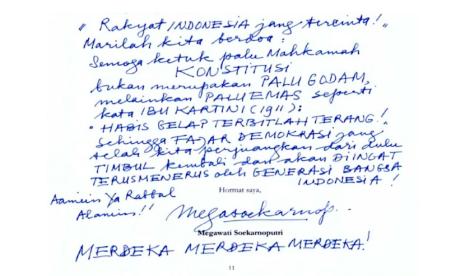 " Rakyat INDONESIA jang tercinta! "
Marilah kita berdoa:
Semoga ketuk palu Mahkamah
KONSTITUSI
bukan merupakan PALU GODAM,
melainkan PALU EMAS seperti
kata IBU KARTINI (1911):
" HABIS GELAP TERBITLAH TERANG!
Sehingga FAJAR DEMOKRASI jang
telah kita perjuangkan dari dulu
TIMBUL kembali dan akan DIINGAT
TERUSMENERUS oleh GENERASI BANGSA
INDONESIA!
Aamiin Ya Rabbal
Alamin!!
Hormat saya,
Megasoekarnop.
Megawati Soekarnoputri
MERDEKA MERDEKA MERDEKA!
11